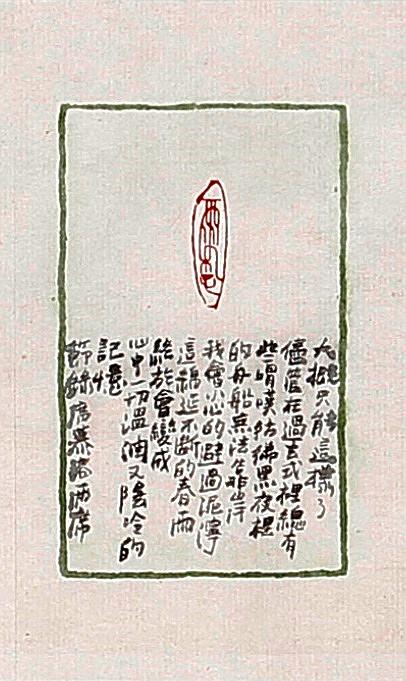 大概只能這樣了
儘管在過去式裡總有
些喟嘆彷彿黑夜裡
的舟船無法靠岸
我會小心的避過泥濘
這綿延不斷的春雨
終於會變成
心中一切溫潤又陰冷的
記憶
節錄席慕蓉雨